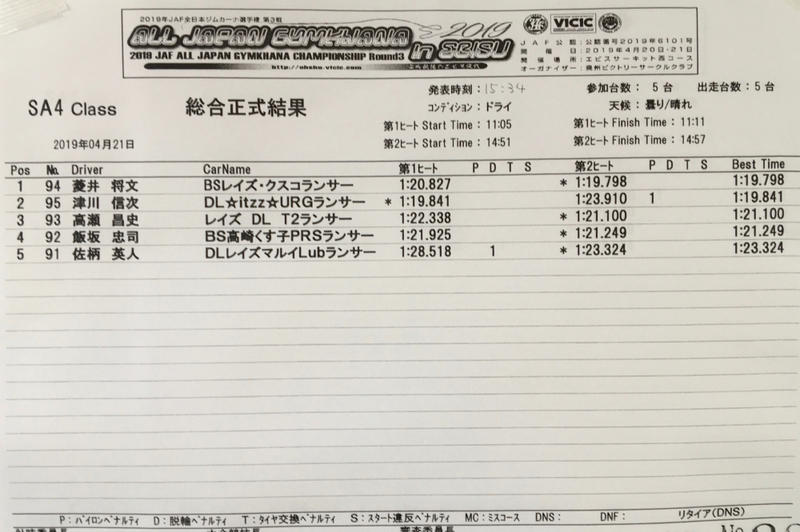 2019年JAF全日本ジムカーナ選手権 第3戦
ALL JAPAN GYMKHANA in EBISU 2019
2019 JAF ALL JAPAN GYMKHANA CHAMPIONSHIP Round3
VICIC
JAF公認：公認番号2019年6101号
開催日：2019年4月20日-21日
開催場所：エビスサーキット西コース
オーガナイザー：奥州ビクトリーサークルクラブ
発表時刻：15:34 参加台数： 5 台 出走台数： 5 台
SA4 Class 総合正式結果 コンディション：ドライ 天候：曇り/晴れ
第1ヒート Start Time： 11:05 第1ヒート Finish Time： 11:11
2019年04月21日 第2ヒート Start Time： 14:51 第2ヒート Finish Time： 14:57
Pos No. Driver CarName 第1ヒート P D T S 第2ヒート P D T S Best Time
1 94 菱井 将文 BSレイズ・クスコランサー 1:20.827 * 1:19.798 1:19.798
2 95 津川 信次 DL☆itzz☆URGランサー * 1:19.841 1:23.910 1 1:19.841
3 93 高瀬 昌史 レイズ DL T2ランサー 1:22.338 * 1:21.100 1:21.100
4 92 飯坂 忠司 BS高崎くす子PRSランサー 1:21.925 * 1:21.249 1:21.249
5 91 佐柄 英人 DLレイズマルイLubランサー 1:28.518 1 * 1:23.324 1:23.324
P：パイロンペナルティ D：脱輪ペナルティ T：タイヤ交換ペナルティ S：スタート違反ペナルティ MC：ミスコース DNS： DNF： リタイア(DNS)
No.